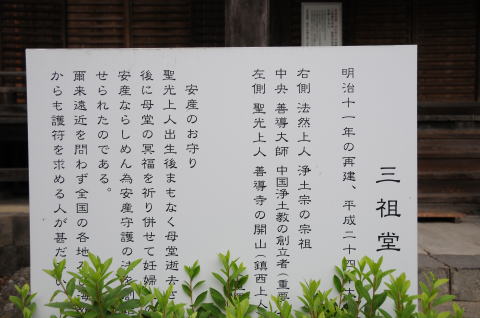 三祖堂
明治十一年の再建、平成二十四
右側 法然上人 浄土宗の宗祖
中央 善導大師 中国浄土教の創立者(重要
左側 聖光上人 善導寺の開山(鎮西上人
安産のお守り
聖光上人出生後まもなく母堂逝去さ
後に母堂の冥福を祈り併せて妊婦
安産ならしめん為安産守護の法を
せられたのである。
爾来遠近を問わず全国の各地
からも護符を求める人が甚だ